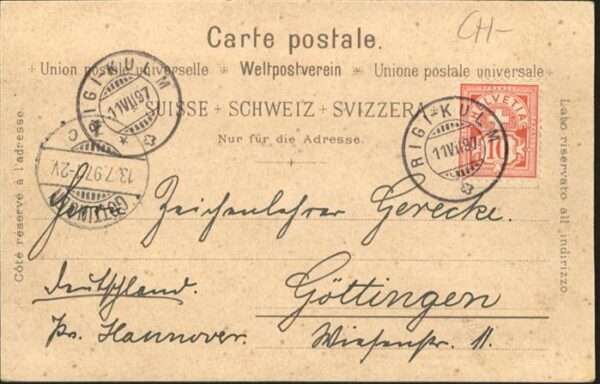 CH-
Carte postale.
Union postale universelle Weltpostverein Unione postale universale
SUISSE + SCHWEIZ + SVIZZERA
Nur für die Adresse.
Côté réservé à l'adresse
Lato riservato all indirizzo
RIGI-KULM
11 VII 97
RIGI-KULM
11 VII 97
HELVETIA
10
13.7.97.2-V
C
Herrn Zeichenlehrer Gerecke.
Deutschland.
Göttingen
Pr. Hannover.
Wiesenstr. 11.